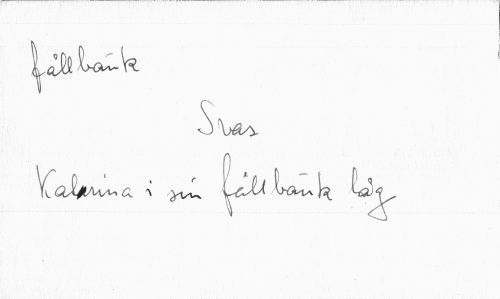 fållbänk
Svas
Katarina i sin fållbänk låg